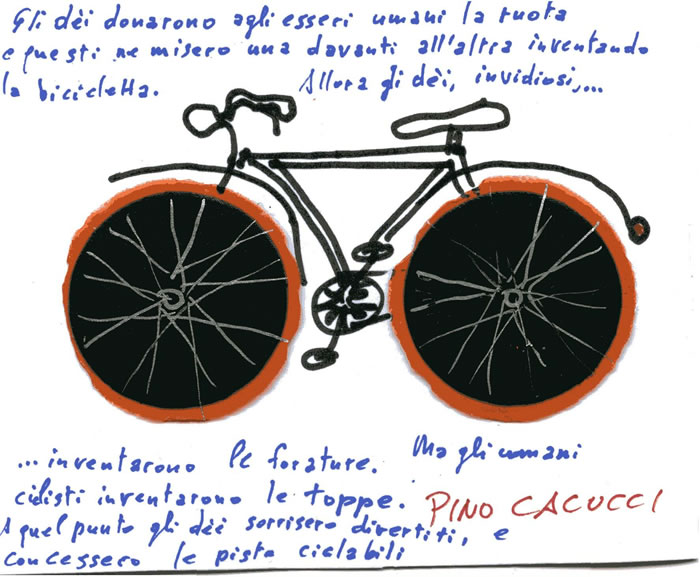 Gli dèi donarono agli esseri umani la ruota
e questi ne misero una davanti all'altra inventando
la bicicletta. Allora gli dèi, invidiosi,...
...inventarono le forature. Ma gli umani
ciclisti inventarono le toppe. PINO CACUCCI
A quel punto gli dèi sorrisero divertiti, e
concessero le piste ciclabili